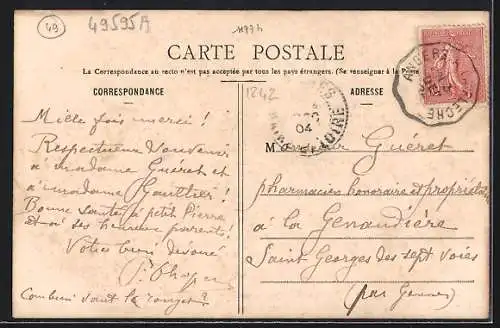 49
49595A
CARTE POSTALE
La Correspondance au recto n'est pas acceptée par tous les pays étrangers. (Se renseigner à la Poste
CORRESPONDANCE
ADRESSE
1242
ANGERS
FLECHE
04
LOIRE
Mille fois merci!
Respectueux Souvenir
à madame Guéret et
à madame Gauthier!
Bonne santé à petit Pierre
et à ses heureux parents!
Votre bien dévoué
Combien vaut le rouget?
M Guéret
pharmacien honoraire et propriétaire
à la Genaudière
Saint Georges des sept voies
(par Gennes)